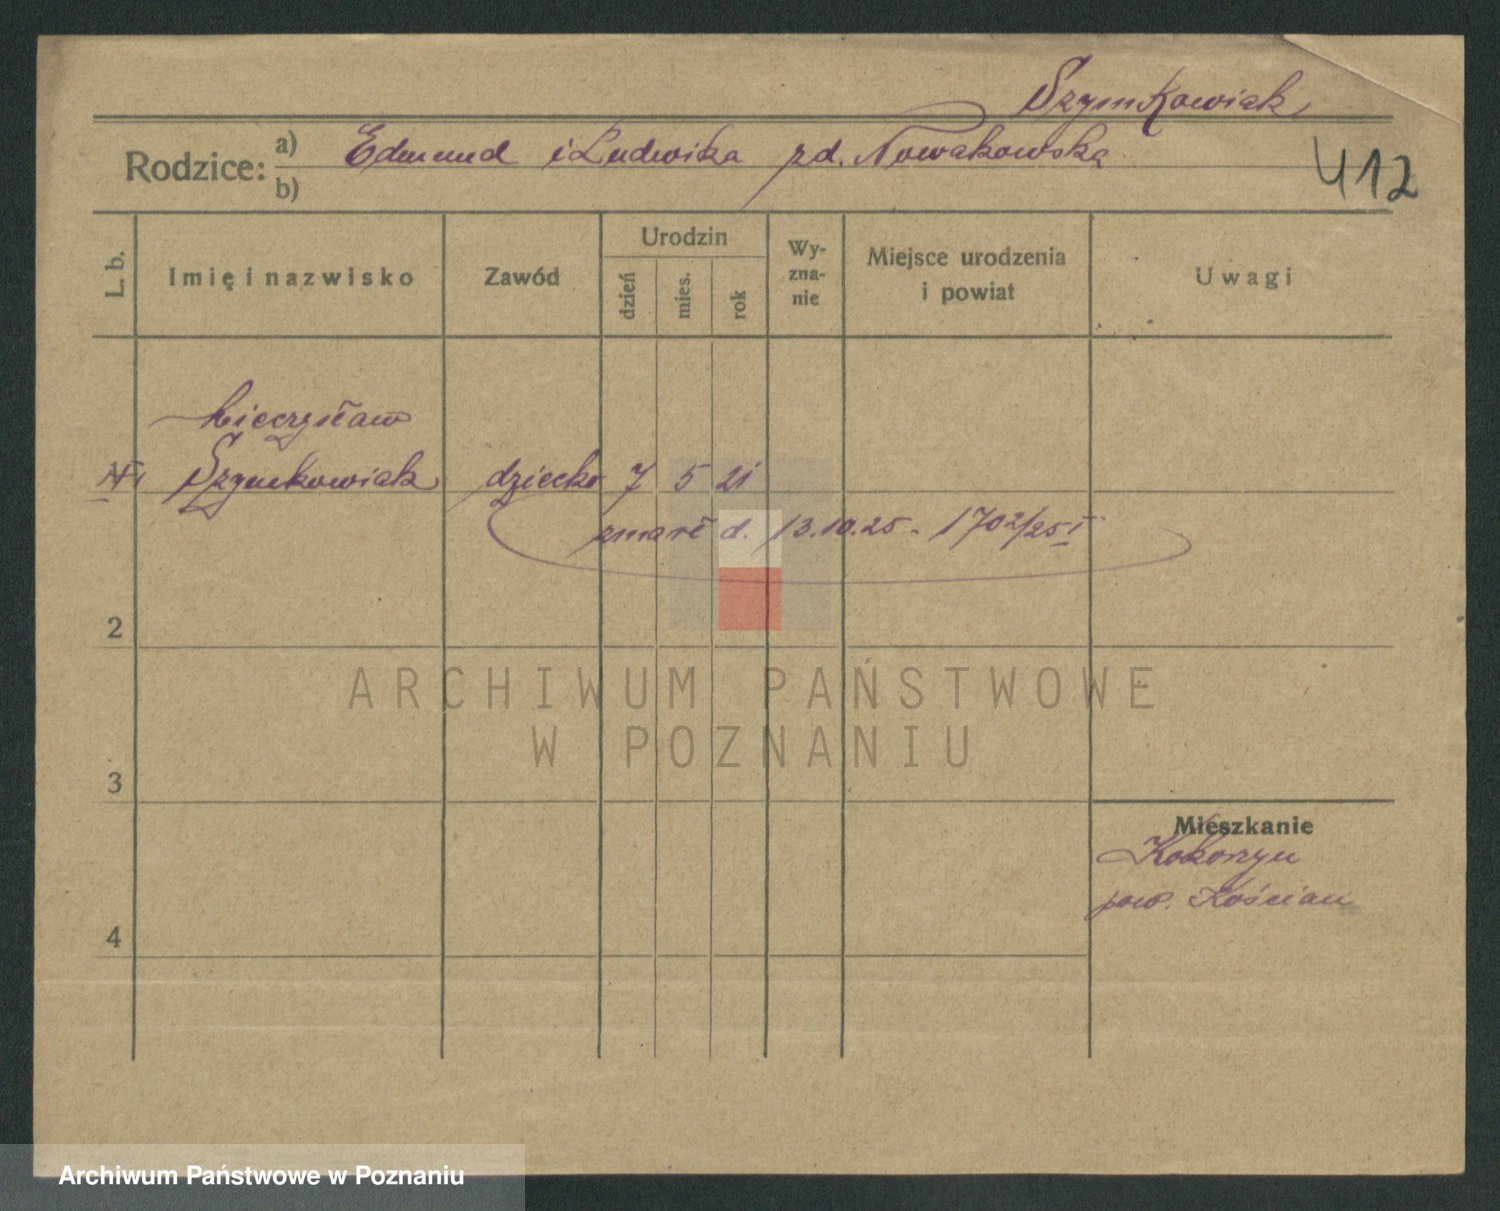 Szymkowiak
Rodzice: a) Edmund i Ludwika zd. Nowakowska
b)
412
L. b.
Imię i nazwisko
Zawód
Urodzin
dzień
mies.
rok
Wy-
zna-
nie
Miejsce urodzenia
i powiat
Uwagi
Mieczysław
Szymkowiak dziecko 7 5 21
zmarł d. 13.10.25 - 1702/25 I
2
ARCHIWUM PAŃSTWOWE
W POZNANIU
3
Mieszkanie
Kokorzyn
pow. Kościan
4
Archiwum Państwowe w Poznaniu